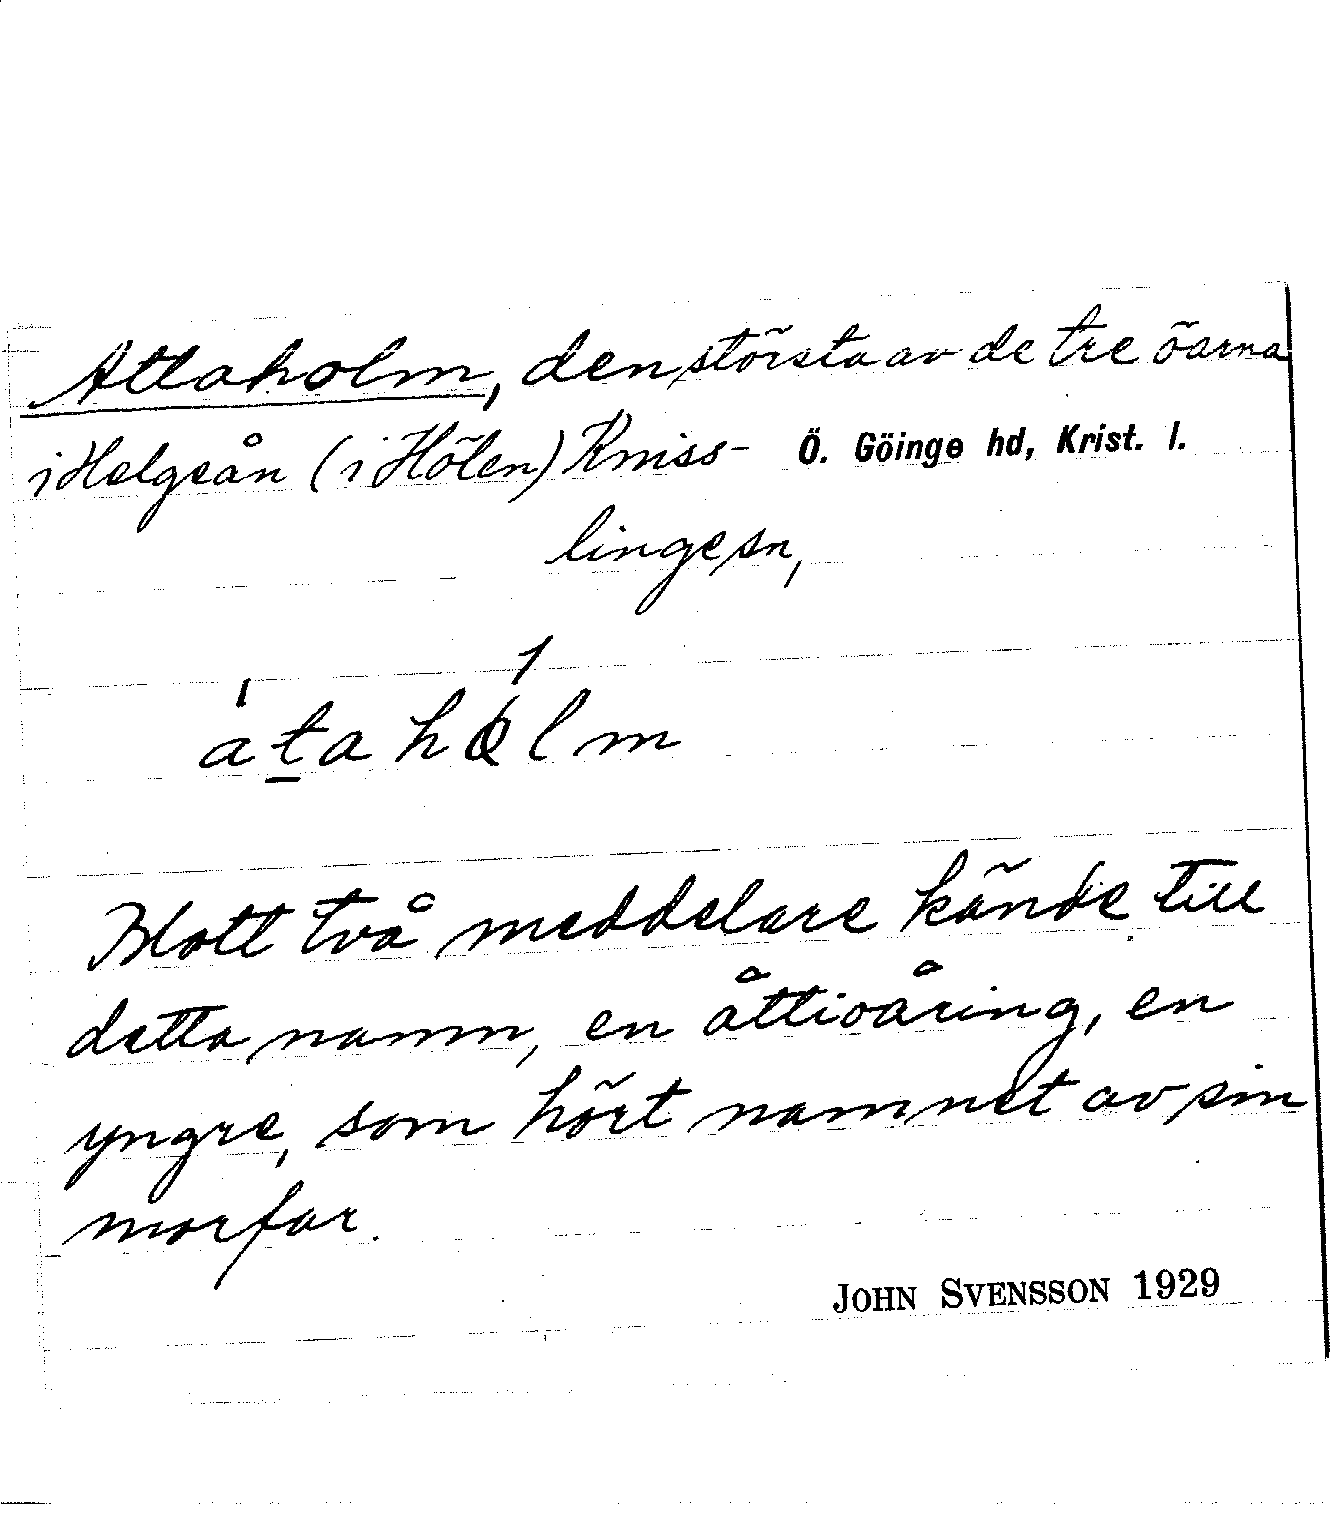 Attaholm, den största av de tre öarna
i Helgeån (i Hölen) Kniss- Ö. Göinge hd, Krist. l.
linge sn,
átahólm
Blott två meddelare kände till
detta namn, en åttioåring, en
yngre, som hört namnet av sin
morfar.
JOHN SVENSSON 1929